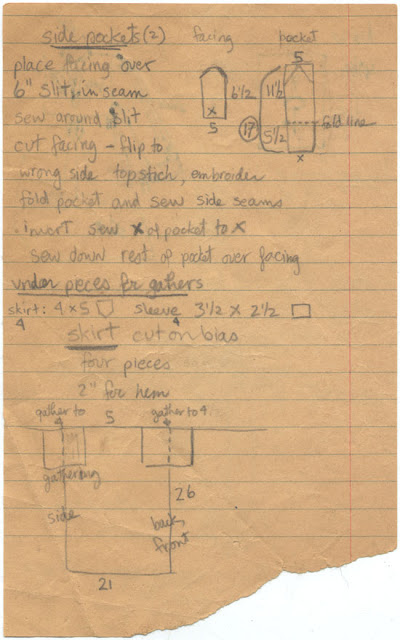 side pockets (2)
facing
pocket
place facing over
6" slit, in seam
sew around slit
cut facing - flip to
wrong side topstich, embroider
fold pocket and sew side seams
invert sew x of pocket to x
sew down rest of pocket over facing
6 1/2
x
5
5
11 1/2
17
5 1/2
fold line
x
under pieces for gathers
skirt: 4 x 5
4
sleeve 3 1/2 x 2 1/2
4
skirt cut on bias
four pieces
2" for hem
gather to
4
5
gather to 4
gathering
side
back
front
26
21